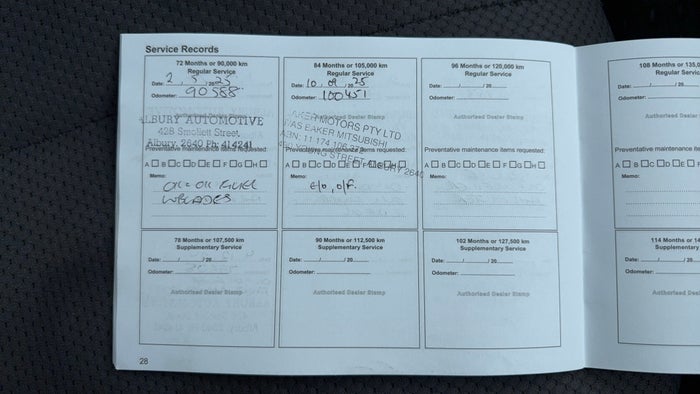 Service Records
72 Months or 90,000 km
Regular Service
Date: 2 / 5 / 2025
Odometer: 90588
ALBURY AUTOMOTIVE
428 Smollett Street,
Albury, 2640 Ph: 414241
Preventative maintenance items requested:
A B C D E F G H
Memo:
OIL + OIL FILTER
W/BLADES
84 Months or 105,000 km
Regular Service
Date: 10 / 09 / 2025
Odometer: 100451
Authorised Dealer Stamp
AKER MOTORS PTY LTD
AS EAKER MITSUBISHI
ABN: 11 174 106
STREET 2640
Preventative maintenance items requested:
A B C D E F G H
Memo:
E/O, O/F.
96 Months or 120,000 km
Regular Service
Date: / / 20
Odometer:
Authorised Dealer Stamp
Preventative maintenance items requested:
A B C D E F G H
Memo:
108 Months or 135,0
Regular Serv
Date: /
Odometer:
Authorised Dealer
Preventative maintenance
A B C D E F
Memo:
78 Months or 107,500 km
Supplementary Service
Date: / / 20
Odometer:
Authorised Dealer Stamp
90 Months or 112,500 km
Supplementary Service
Date: / / 20
Odometer:
Authorised Dealer Stamp
102 Months or 127,500 km
Supplementary Service
Date: / / 20
Odometer:
Authorised Dealer Stamp
114 Months or 14
Supplementary
Date: /
Odometer:
Authorised Deal
28